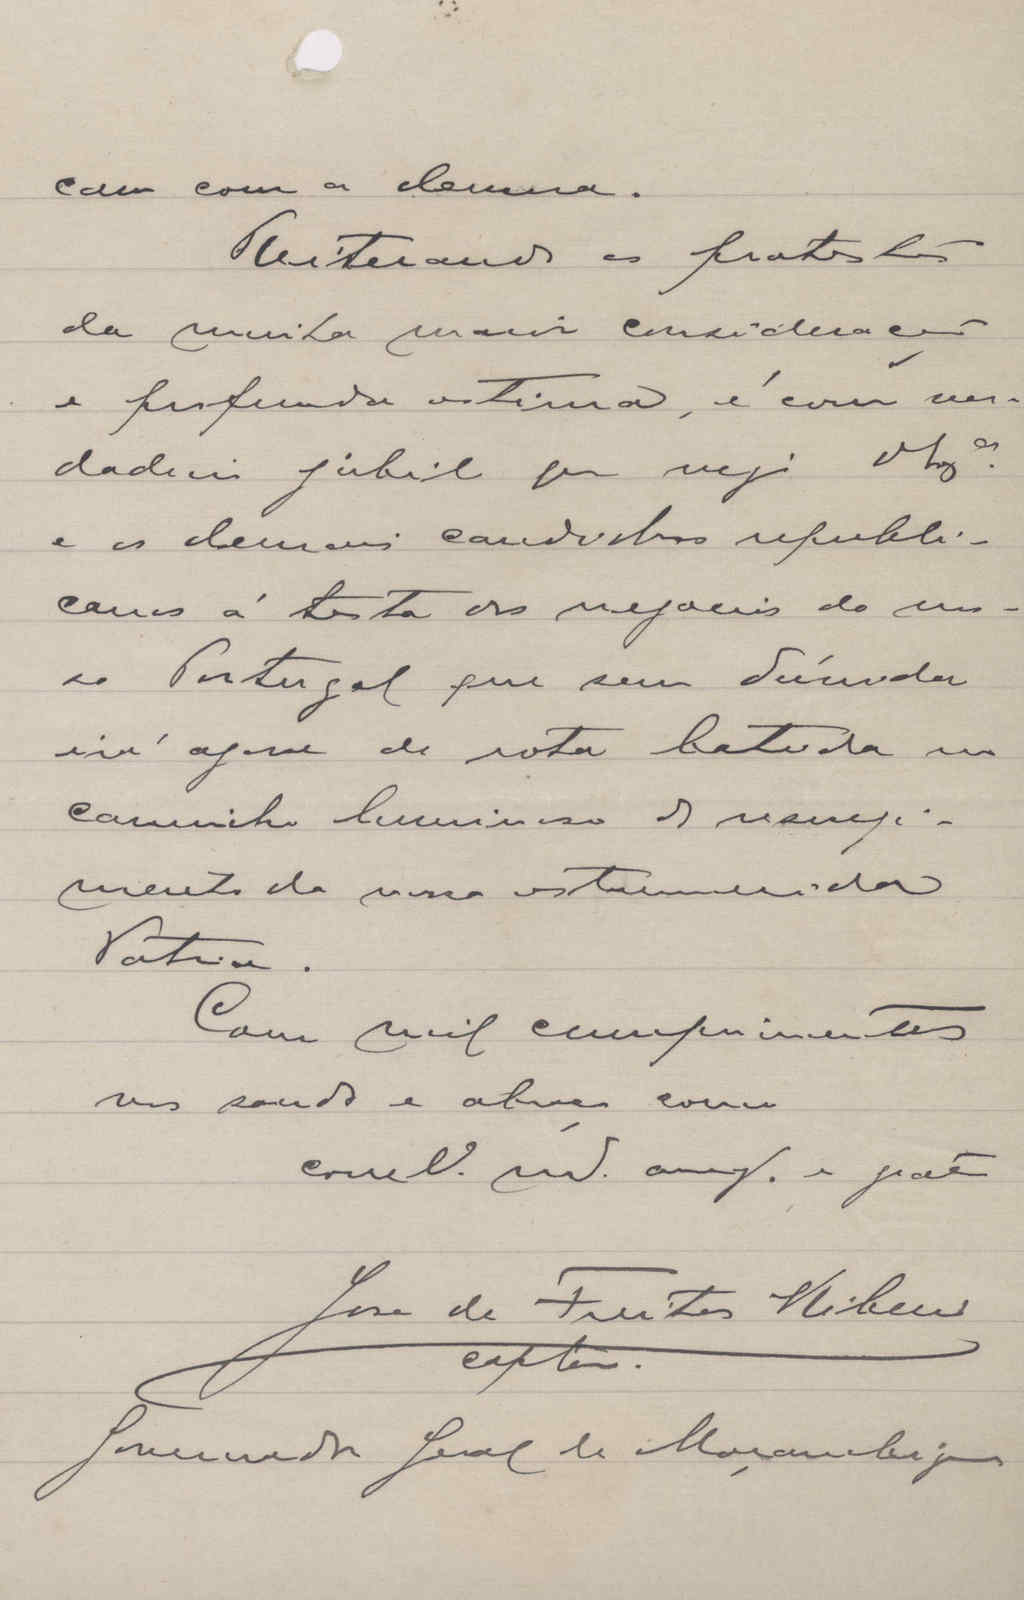 cam com a demora.
Reiterando os protestos
da muita maior consideração
e profunda estima, é com ver-
dadeiro jubilo que vejo V. Ex.as
e os demais candidatos republi-
canos á testa dos negocios do nos-
so Portugal que sem dúvida
irá agora de rota batida no
caminho luminoso do resurgi-
mento da nossa estremecida
Patria.
Com mil cumprimentos
vos saudo e abraço como
correl. amg. e grato
José de Freitas Ribeiro
capten.
Governador Geral de Moçambique